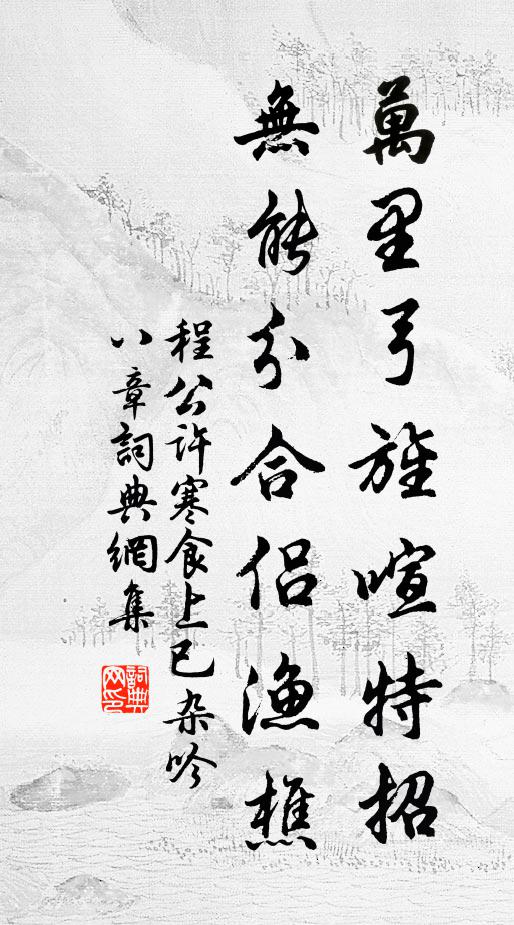 萬里弓旌喧特招
無能分合侶漁樵
程公許寒食上巳杂吟
八章詞典網集
詞典网印